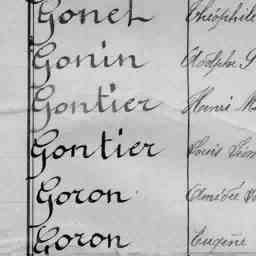 Gonet Théophile
Gonin Adolphe
Gontier Henri
Gontier Louis
Goron Amédée
Goron Eugène